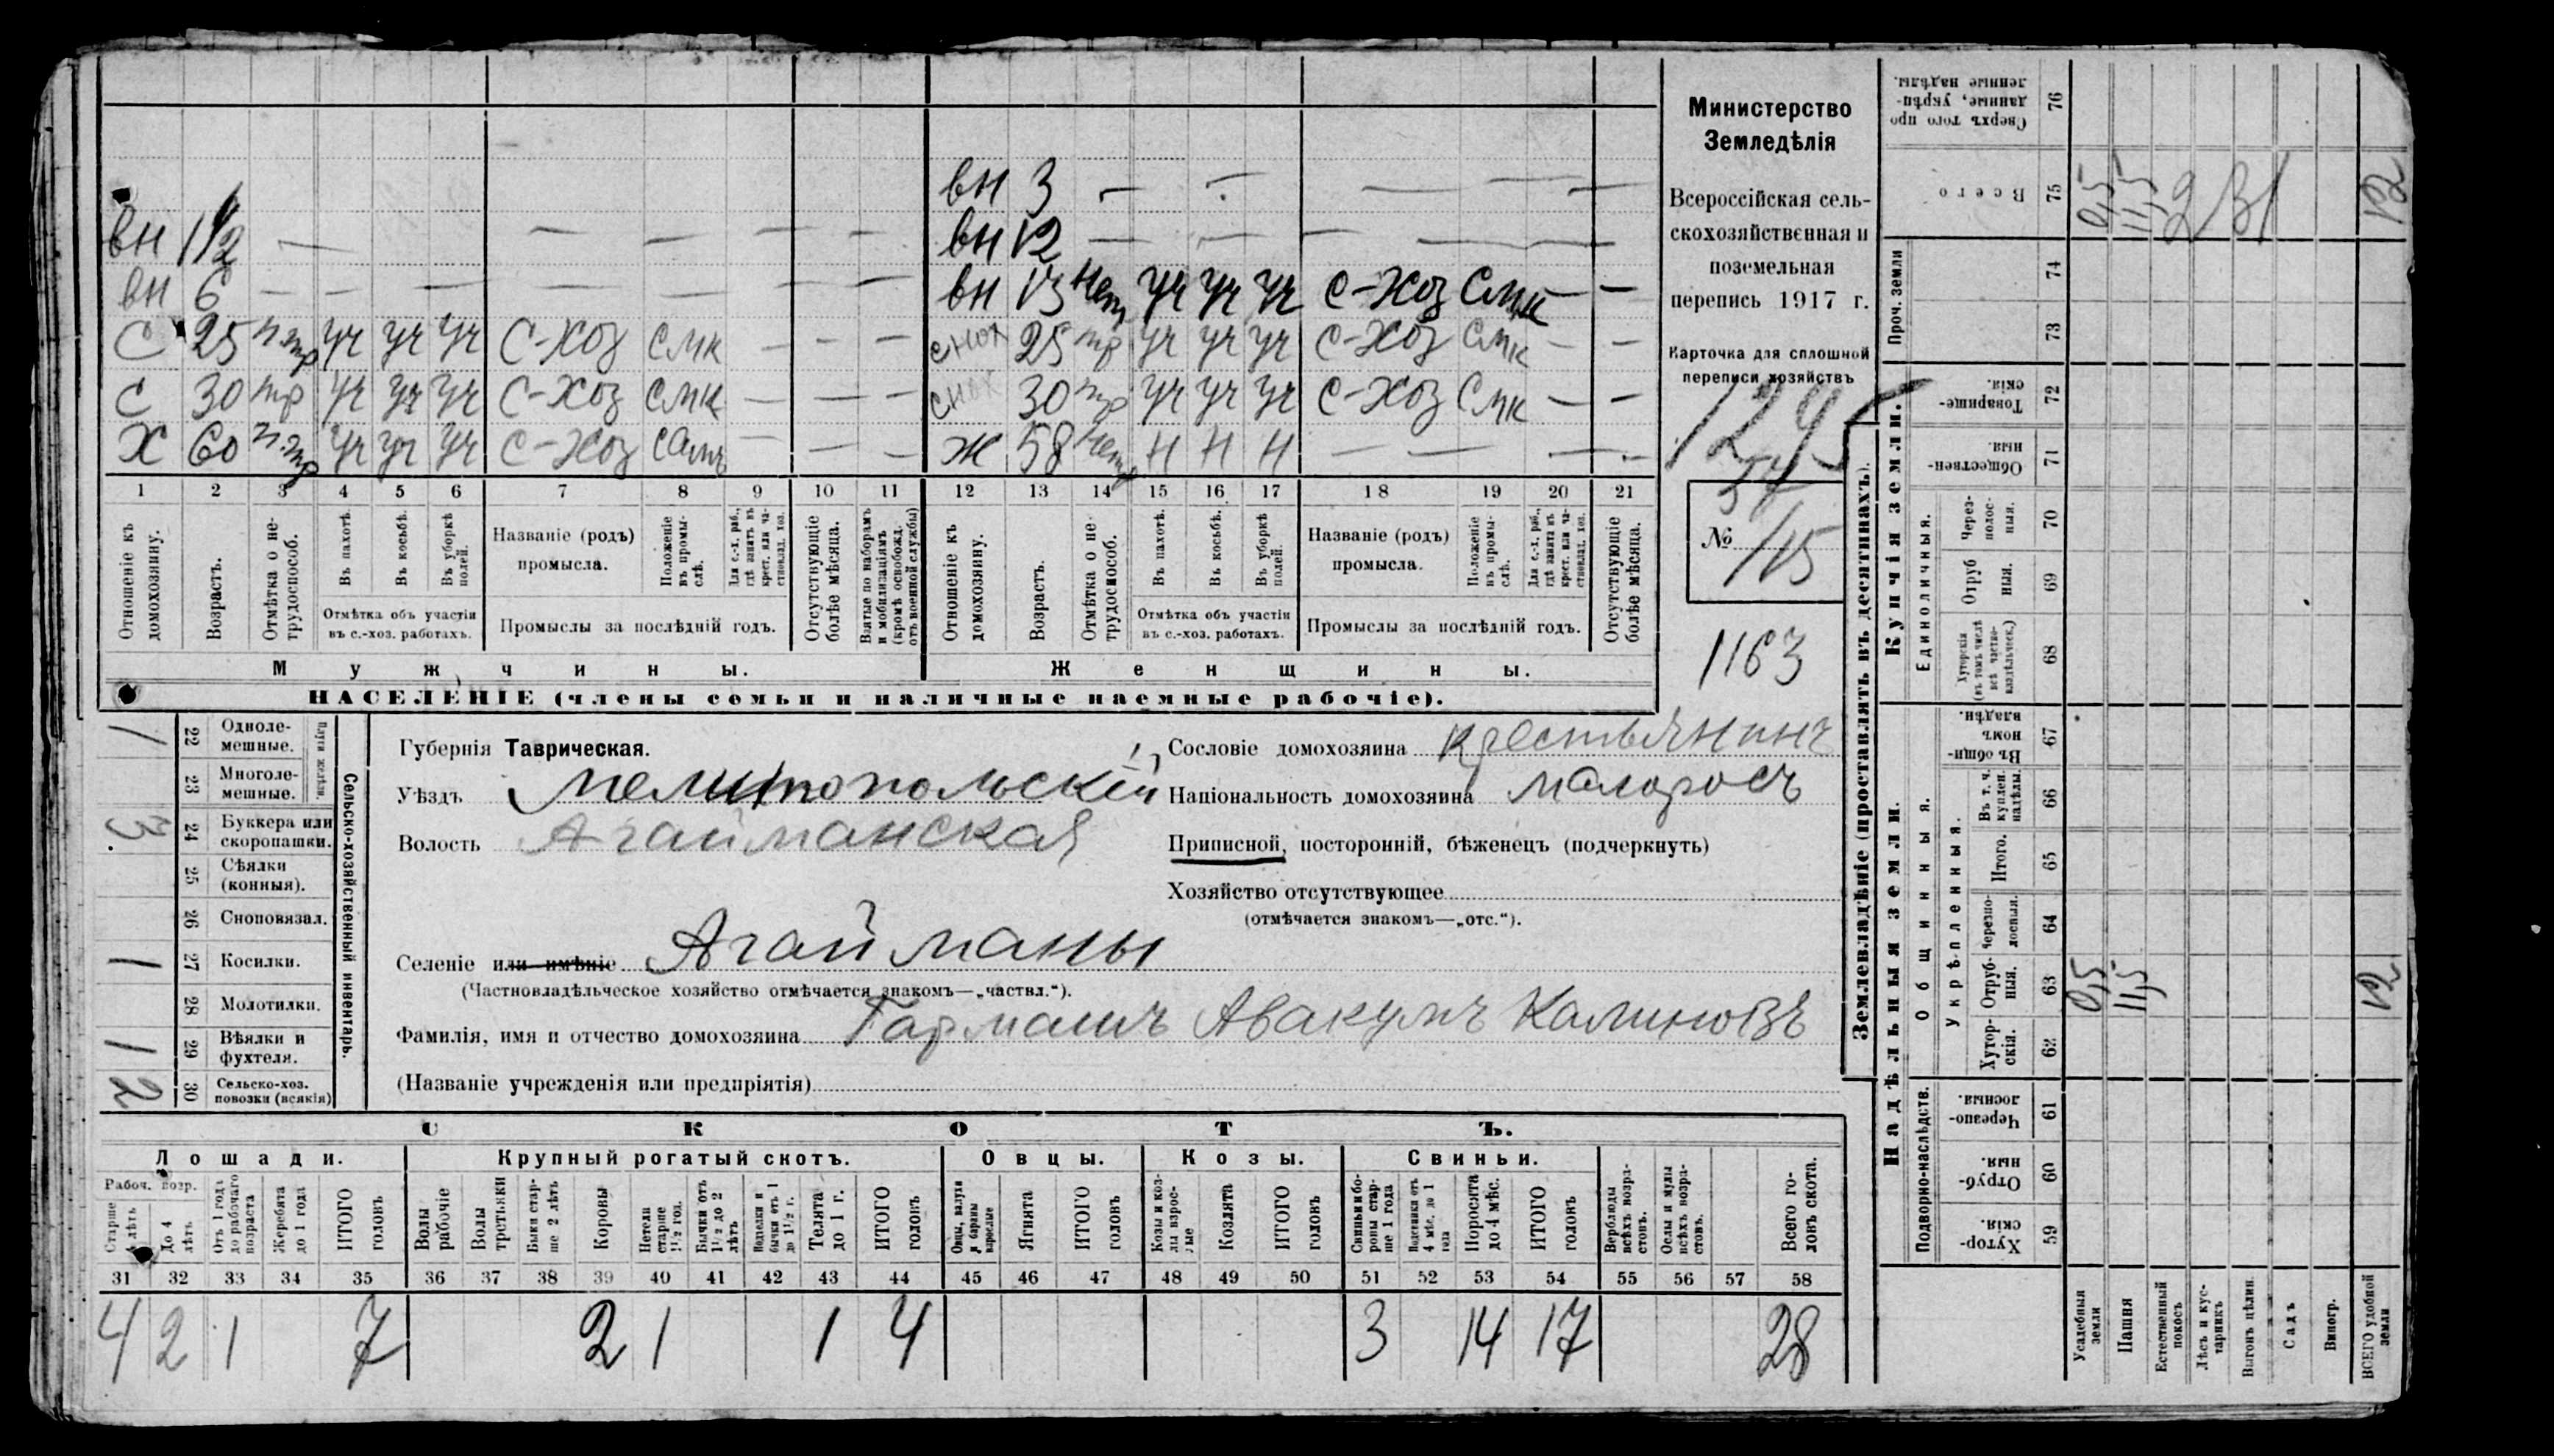 вн 3 — — — — —
вн 1 1/2 — — — — — — вн 12 — — — — —
вн 6 — — — — — — — вн 13 нетр уч уч уч С-Хоз Смк — —
С 25 п.тр уч уч уч С-Хоз смк — — — снох 25 тр уч уч уч С-Хоз Смк — —
С 30 тр уч уч уч С-Хоз смк — — — снох 30 тр уч уч уч С-Хоз Смк — —
Х 60 п.тр уч уч уч С-Хоз самъ — — — Ж 58 нетр Н Н Н — — — —
1 2 3 4 5 6 7 8 9 10 11 12 13 14 15 16 17 18 19 20 21
Отношеніе къ домохозяину.
Возрастъ.
Отмѣтка о нетрудоспособ.
Въ пахотѣ.
Въ косьбѣ.
Въ уборкѣ полей.
Отмѣтка объ участіи
въ с.-хоз. работахъ.
Названіе (родъ)
промысла.
Положеніе въ промыслѣ.
Для с.-х. раб., гдѣ занятъ въ крест. или частновлад. хоз.
Промыслы за послѣдній годъ.
Отсутствующіе болѣе мѣсяца.
Взятые по наборамъ и мобилизаціямъ (кромѣ освобожд. отъ военной службы)
Отношеніе къ домохозяину.
Возрастъ.
Отмѣтка о нетрудоспособ.
Въ пахотѣ.
Въ косьбѣ.
Въ уборкѣ полей.
Отмѣтка объ участіи
въ с.-хоз. работахъ.
Названіе (родъ)
промысла.
Положеніе въ промыслѣ.
Для с.-х. раб., гдѣ занята въ крест. или частновлад. хоз.
Промыслы за послѣдній годъ.
Отсутствующіе болѣе мѣсяца.
Мужчины. Женщины.
НАСЕЛЕНІЕ (члены семьи и наличные наемные рабочіе).
Министерство
Земледѣлія
Всероссійская сель-
скохозяйственная и
поземельная
перепись 1917 г.
Карточка для сплошной
переписи хозяйствъ
1295
54
№ 115
1163
Сельско-хозяйственный инвентарь.
Плуги желѣзн.
1 22 Одноле-
мешные.
23 Многоле-
мешные.
3. 24 Буккера или
скоропашки.
25 Сѣялки
(конныя).
26 Сноповязал.
1 27 Косилки.
28 Молотилки.
1 29 Вѣялки и
фухтеля.
2 30 Сельско-хоз.
повозки (всякія)
Губернія Таврическая.
Уѣздъ Мелитопольскій
Волость Агайманская
Селеніе или имѣніе Агайманы
(Частновладѣльческое хозяйство отмѣчается знакомъ—„частвл.“).
Фамилія, имя и отчество домохозяина Гармашъ Авакумъ Калиновъ
(Названіе учрежденія или предпріятія)
Сословіе домохозяина крестьянинъ
Національность домохозяина малоросъ
Приписной, посторонній, бѣженецъ (подчеркнуть)
Хозяйство отсутствующее
(отмѣчается знакомъ—„отс.“).
СКОТЪ.
Лошади. Крупный рогатый скотъ. Овцы. Козы. Свиньи.
Рабоч. возр.
Старше 4 лѣтъ
До 4 лѣтъ
Отъ 1 года до рабочаго возраста
Жеребята до 1 года
ИТОГО головъ
Волы рабочіе
Волы третьяки
Быки старше 2 лѣтъ
Коровы
Нетели старше 1 1/2 год.
Бычки отъ 1 1/2 до 2 лѣтъ
Подтелки и бычки отъ 1 до 1 1/2 г.
Телята до 1 г.
ИТОГО головъ
Овцы, валухи и бараны взрослые
Ягнята
ИТОГО головъ
Козы и козлы взрослые
Козлята
ИТОГО головъ
Свиньи и боровы старше 1 года
Подсвинки отъ 4 мѣс. до 1 года
Поросята до 4 мѣс.
ИТОГО головъ
Верблюды всѣхъ возрастовъ.
Ослы и мулы всѣхъ возрастовъ.
Всего головъ скота.
31 32 33 34 35 36 37 38 39 40 41 42 43 44 45 46 47 48 49 50 51 52 53 54 55 56 57 58
4 2 1 7 2 1 1 4 3 14 17 28
Землевладѣніе (проставлять въ десятинахъ).
Надѣльныя земли. Купчія земли.
Проч. земли
Подворно-наслѣдств.
Общинныя.
Укрѣпленныя.
Единоличныя.
Сверхъ того проданные, укрѣпленные надѣлы. 76
Всего 75 0,5 11,5 2 31 12
74
73
Товарищескія. 72
Общественныя. 71
Черезполосныя. 70
Отрубныя. 69
Хуторскія (въ томъ числѣ всѣ частновладѣльческ.) 68
Въ общинномъ владѣн. 67
Въ т. ч. куплен. надѣлы. 66
Итого. 65
Черезполосныя. 64
Отрубныя. 63 0,5 11,5 12
Хуторскія. 62
Черезполосныя. 61
Отрубныя. 60
Хуторскія. 59
Усадебныя земли
Пашня
Естественный покосъ
Лѣсъ и кустарникъ
Выгонъ цѣлин.
Садъ
Виногр.
ВСЕГО удобной земли